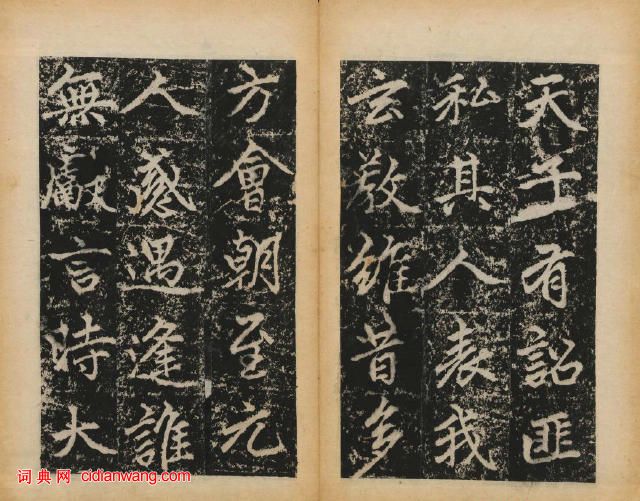 天子有詔匪
私其人表我
玄教雖昔多
方會朝至元
人感遇逢誰
無獻言時大
词典网 cidianwang.com